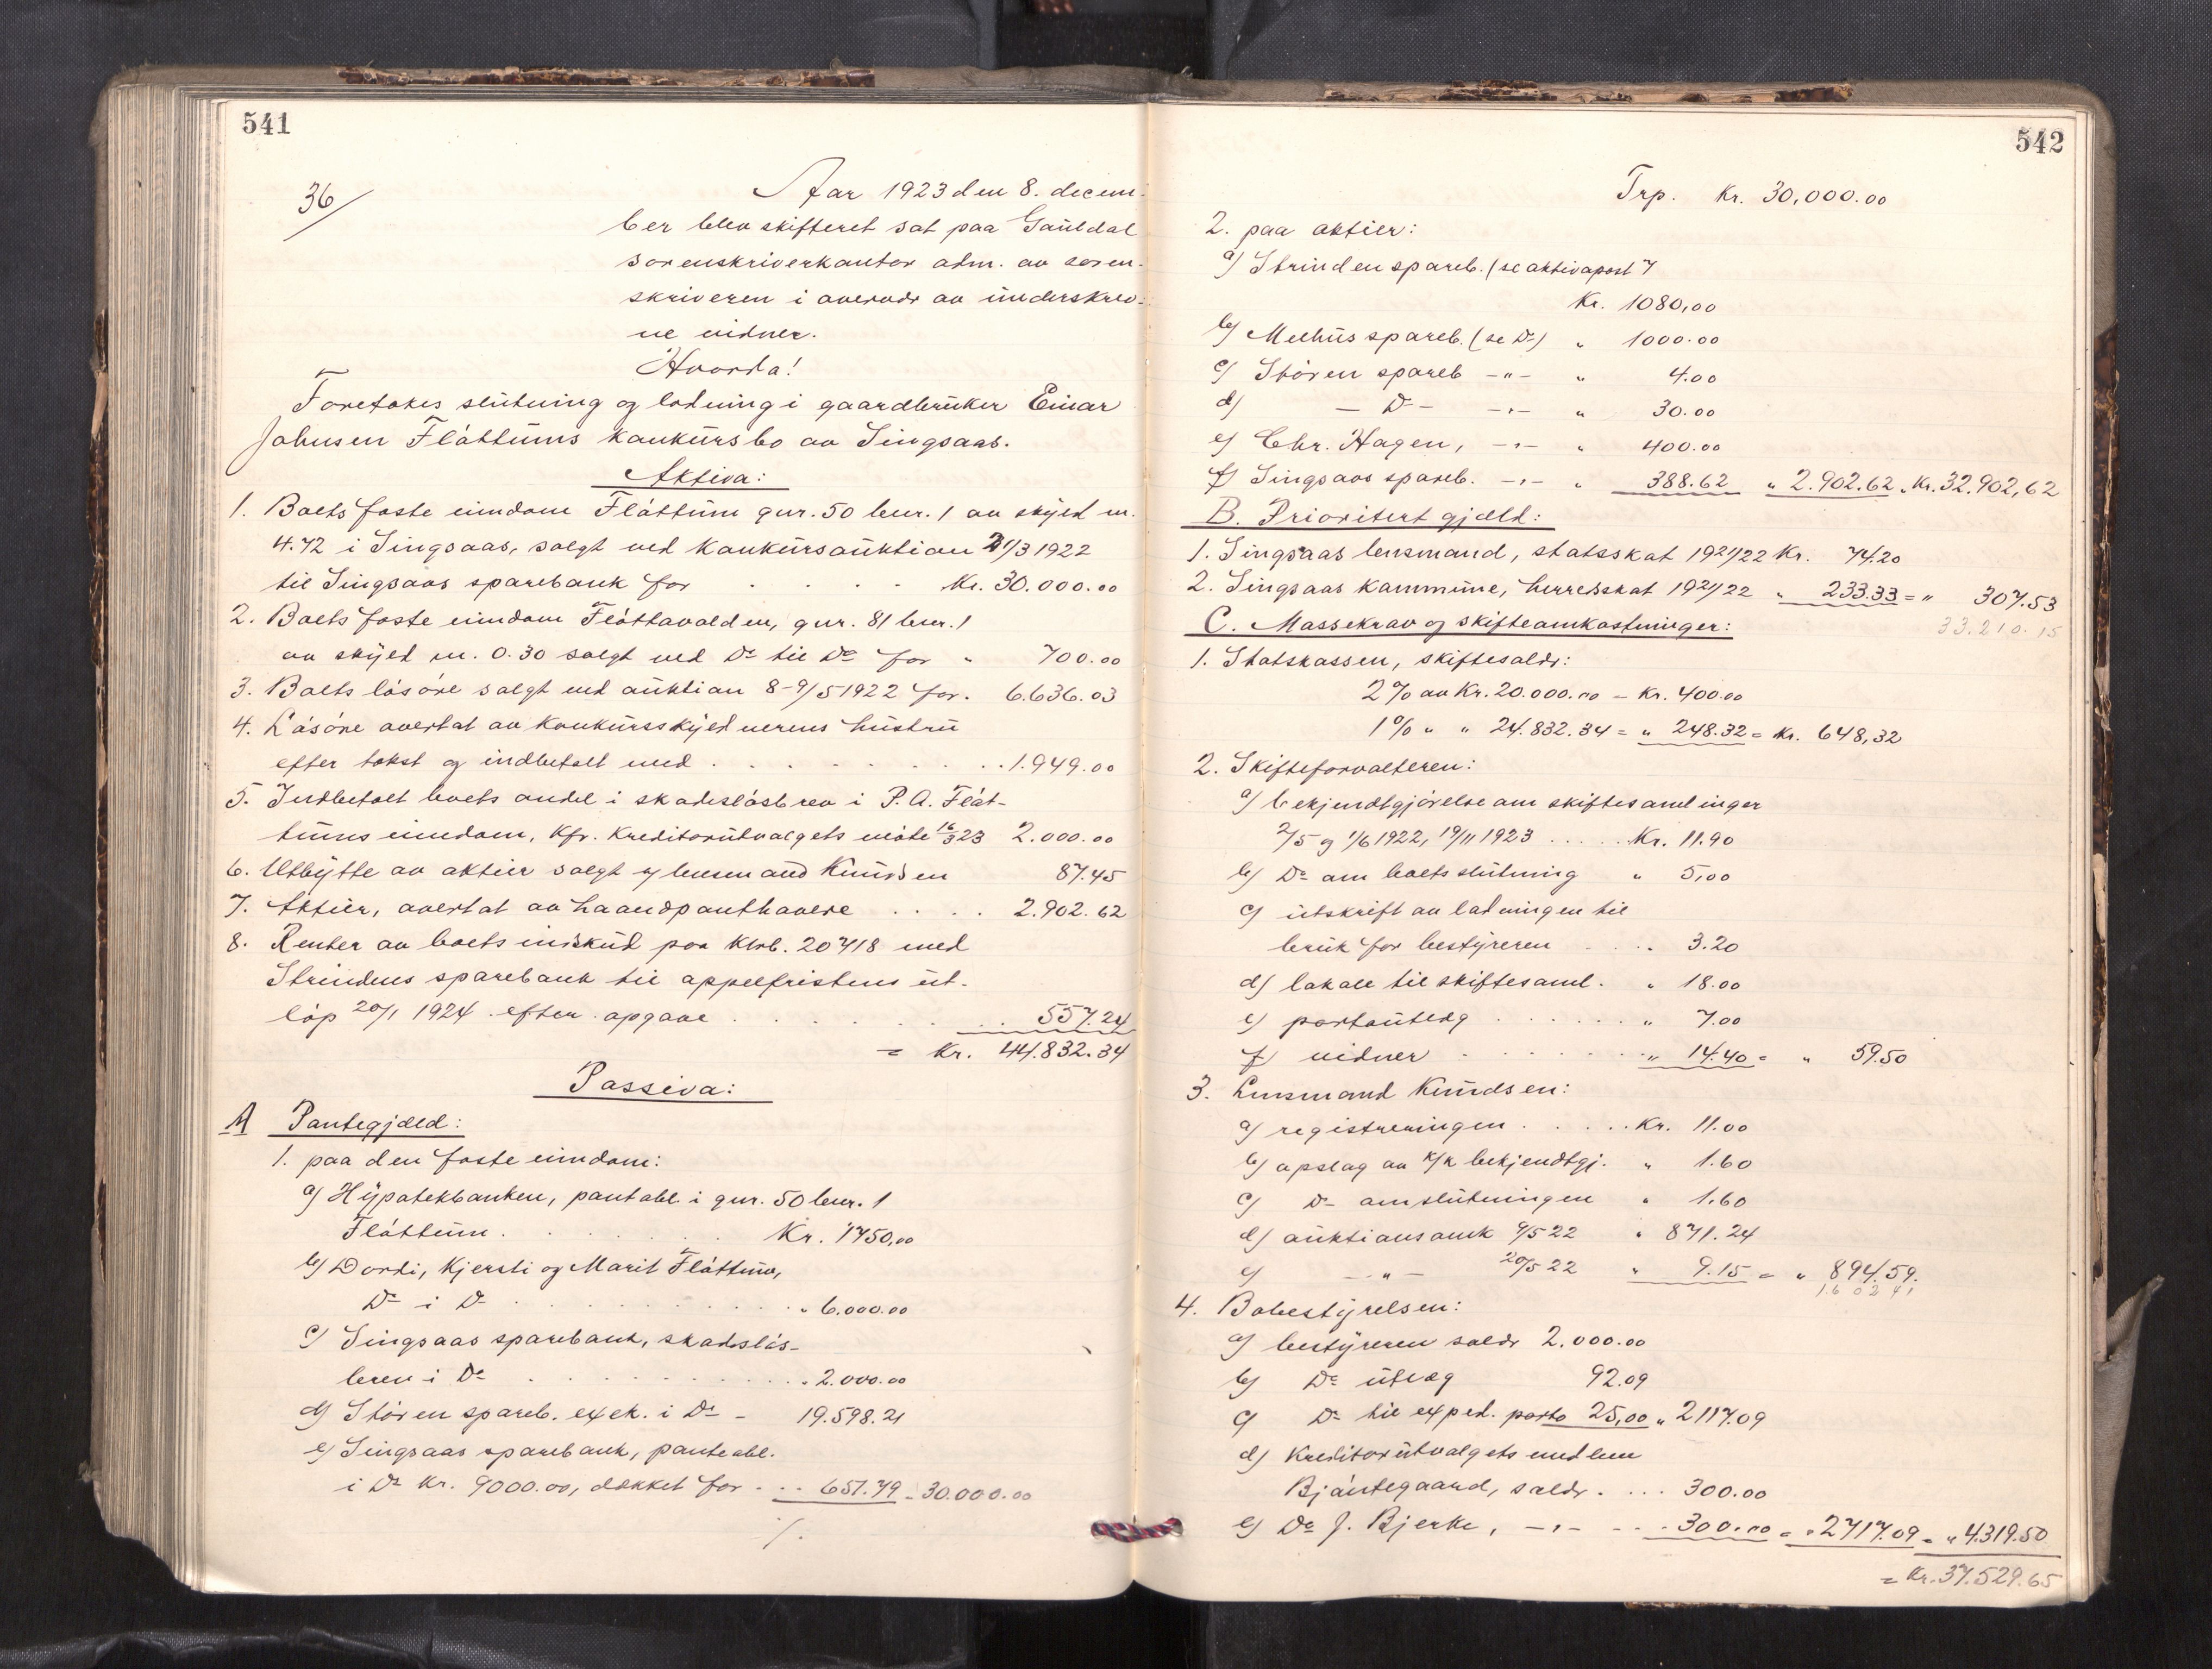 541
36/
Aar 1923 den 8. decem-
ber blev skifteret sat paa Gauldal
sorenskriverkontor adm. av soren-
skriveren i overvær av underskrev-
ne vidner.
Hvorda!
Foretokes slutning og lodning i gaardbruker Einar
Johnsen Flåttums konkursbo av Singsaas.
Aktiva:
1. Boets faste eiendom Flåttum gnr. 50 bnr. 1 av skyld m.
4.72 i Singsaas, solgt ved konkursauktion 21/3 1922
til Singsaas sparebank for . . . . Kr. 30.000.00
2. Boets faste eiendom Flåttavolden, gnr. 81 bnr. 1
av skyld m. 0.30 solgt ved Do til Do for " 700.00
3. Boets løsøre solgt ved auktion 8-9/5 1922 for . 6.636.03
4. Løsøre overtat av konkursskyldnerens hustru
efter takst og indbetalt med . . . . . . . . . 1.949.00
5. Indbetalt boets andel i skadesløsbrev i P. A. Flåt-
tums eiendom, kfr. kreditorutvalgets møte 16/3 23 2.000.00
6. Utbytte av aktier solgt v/ lensmand Knudsen 87.45
7. Aktier, overtat av haandpanthavere . . . . 2.902.62
8. Renter av boets indskud paa ktrb. 20718 med
Strindens sparebank til appelfristens ut-
løp 20/1 1924 efter opgave . . . . . . . . 557.24
= Kr. 44.832.34
Passiva:
A Pantegjæld:
1. paa den faste eiendom:
a) Hypotekbanken, pantobl. i gnr. 50 bnr. 1
Flåttum . . . . . . . Kr. 1750,00
b) Dordi, Kjersti og Marit Flåttum,
Do i Do . . . . . . . . . . . . " 6.000.00
c) Singsaas sparebank, skadesløs-
brev i Do . . . . . . . . . . . . 2.000.00
d) Støren spareb. exek. i Do - 19.598.21
e) Singsaas sparebank, panteobl.
i Do Kr. 9000.00, dækket for . . . 651.79 = 30.000.00
./.
542
Trp. Kr. 30,000.00
2. paa aktier:
a) Strinden spareb. (se aktivapost 7
Kr. 1080,00
b) Melhus spareb. (se Do) " 1000.00
c) Støren spareb -"- " 4.00
d) - Do - -"- " 30.00
e) Chr. Hagen, -"- " 400.00
f) Singsaas spareb. -"- " 388.62 " 2.902.62 . Kr. 32.902,62
B. Prioritert gjæld:
1. Singsaas lensmand, statsskat 1921/22 Kr. 74.20
2. Singsaas kommune, herredsskat 1921/22 " 233.33 = " 307.53
33.210.15
C. Massekrav og skifteomkostninger:
1. Statskassen, skiftesalær:
2% av Kr. 20.000.00 = Kr. 400.00
1% " " 24.832.34 = " 248.32 = Kr. 648,32
2. Skifteforvalteren:
a) bekjendtgjørelse om skiftesamlinger
2/5 og 1/6 1922, 19/11 1923 . . . . . Kr. 11.90
b) Do om boets slutning " 5,00
c) utskrift av lodningen til
bruk for bestyreren . . . . 3.20
d) lokale til skiftesaml. " 18.00
e) portoutlæg . . . . . . " 7.00
f) vidner . . . . . . . " 14.40 = " 59.50
3. Lensmand Knudsen:
a) registreringen . . . . . Kr. 11.00
b) opslag av k/k bekjendtgj. " 1.60
c) Do om slutningen " 1.60
d) auktionsomk 9/5 22 " 871.24
e) - " - 20/5 22 " 9.15 = " 894.59.
1602 41
4. Bobestyrelsen:
a) bestyreren salær 2.000.00
b) Do utlæg 92.09
c) Do til exped. porto 25,00 " 2117.09
d) kreditorutvalgets medlem
Bjørtegaard, salær . . . . 300.00
e) Do J. Bjerke, -"- . . . 300.00 = " 2717.09 = " 4.319.50
= Kr. 37.529.65